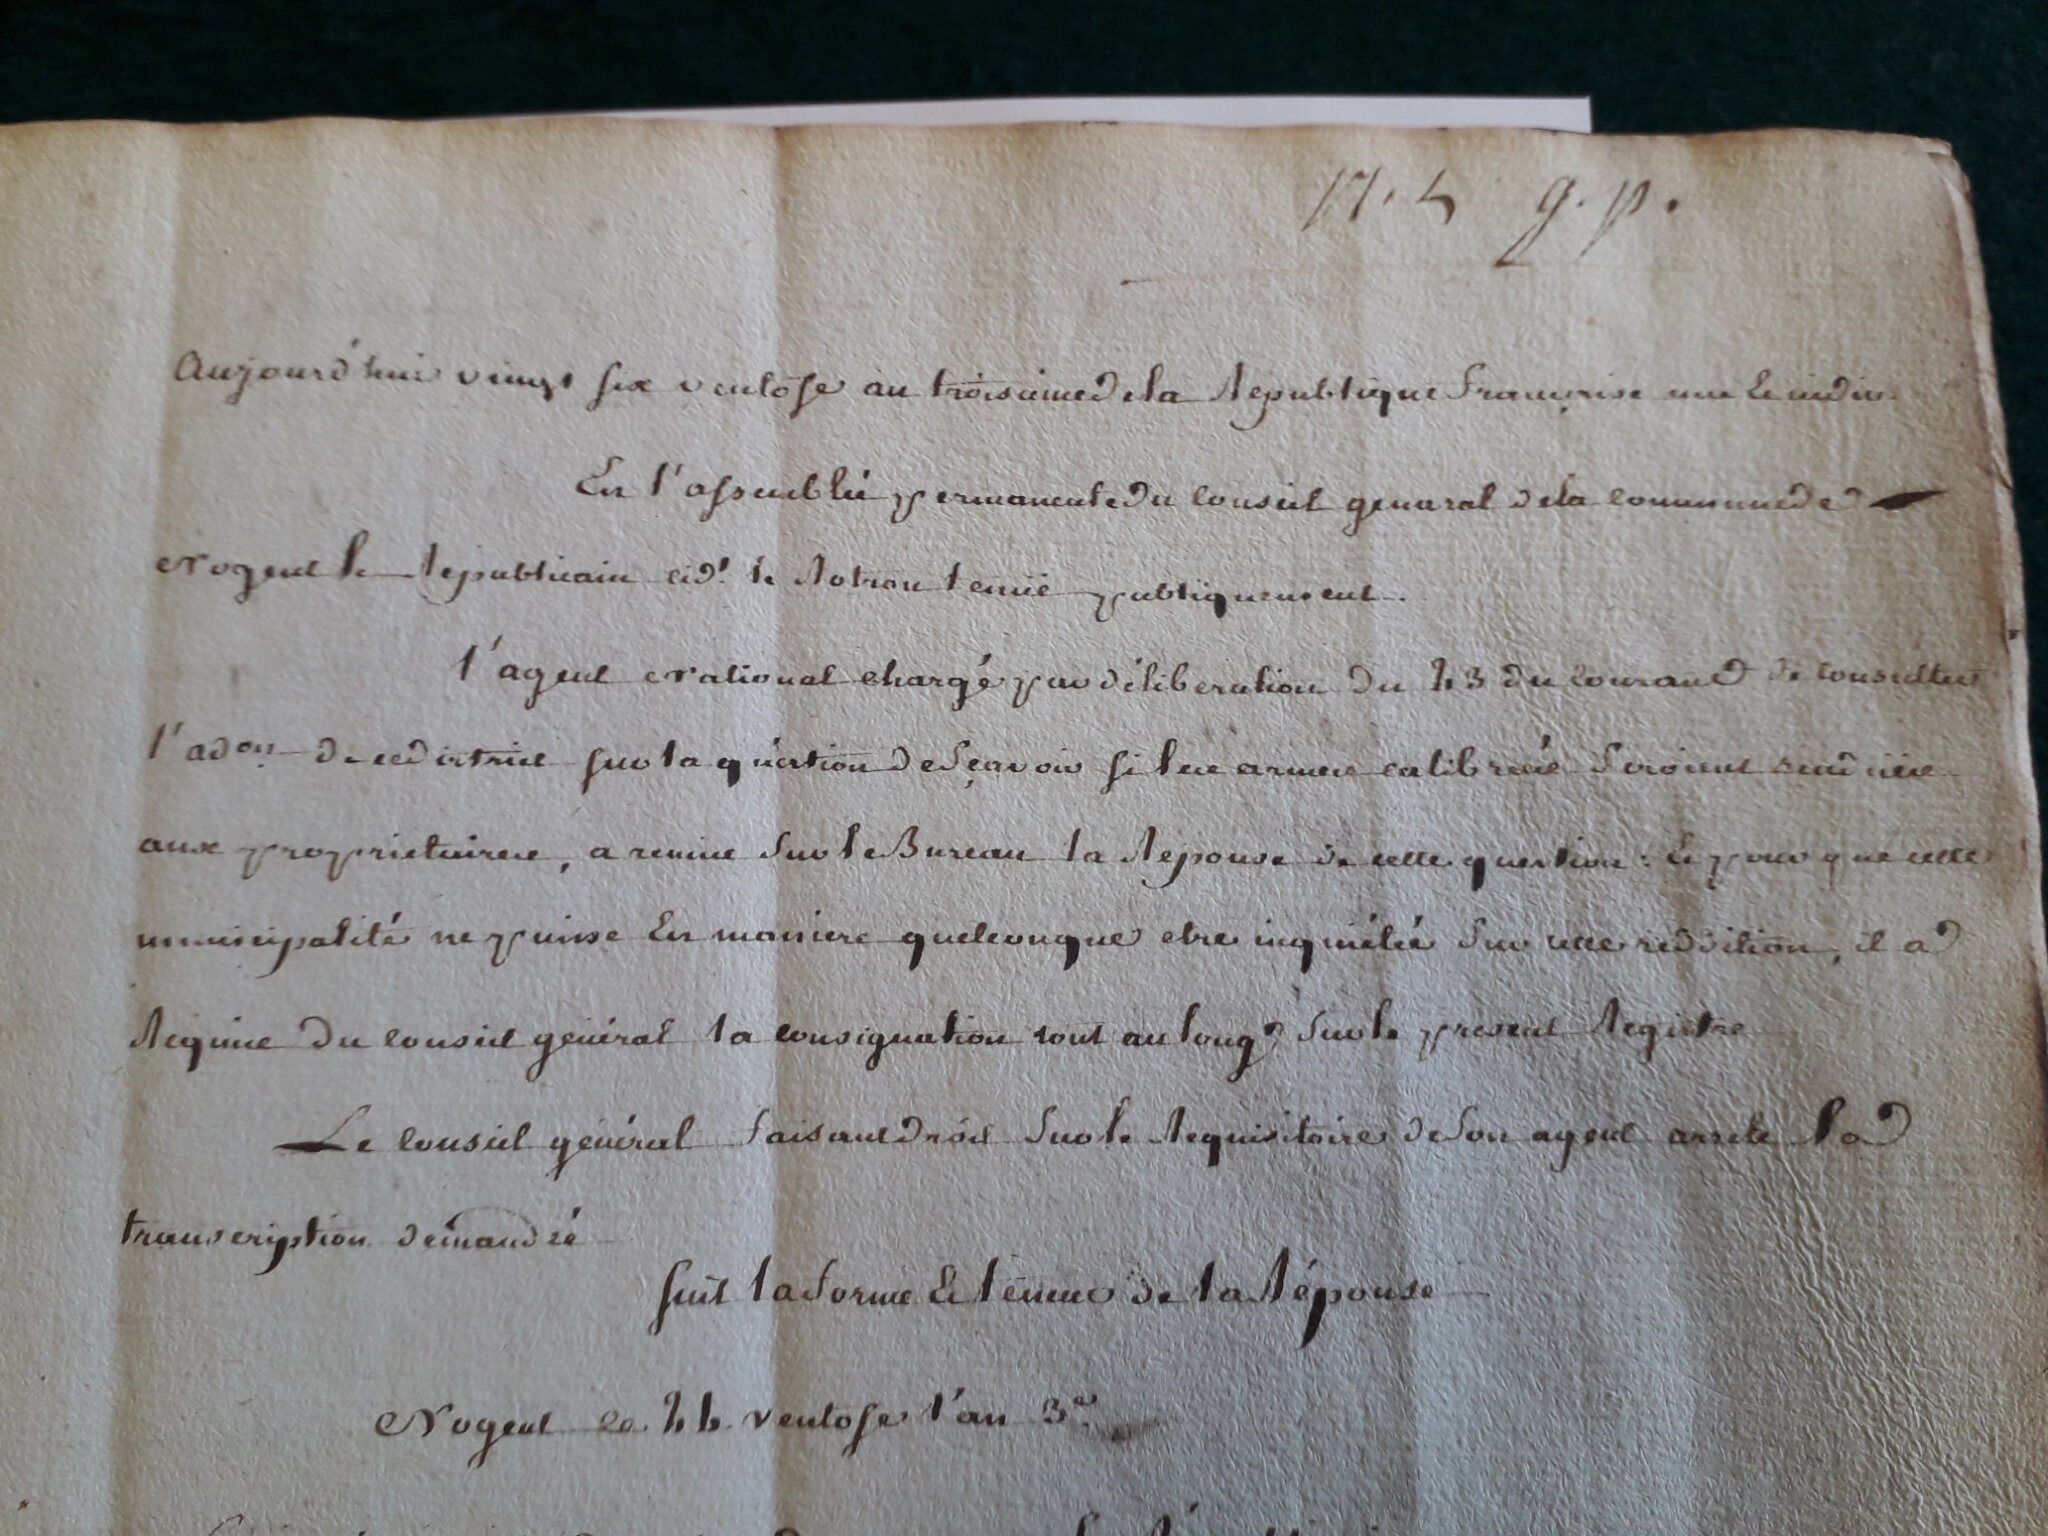 Aujourd'hui vingt six ventôse an troisieme de la Republique française une et indiv.
En l'assemblée permanente du Conseil general de la commune de
Nogent le Republicain cid.t le Rotrou tenüe publiquement.
l'agent National chargé par déliberation du 23 du courant de consulter
l'ad.on de ce district sur la question de sçavoir si les armes calibrées seroient rendües
aux proprietaires, a remise sur le Bureau la Reponse de cette question: Et pour que cette
municipalité ne puisse En maniere quelconque etre inquiétée sur cette reddition, il a
Requise du Conseil général la consignation tout au long sur le present Registre
Le Conseil général faisant droit sur le Requisitoire de son agent arrete la
transcription demandée
suit la forme Et teneur de la Réponse
Nogent ce 24 ventose l'an 3.e